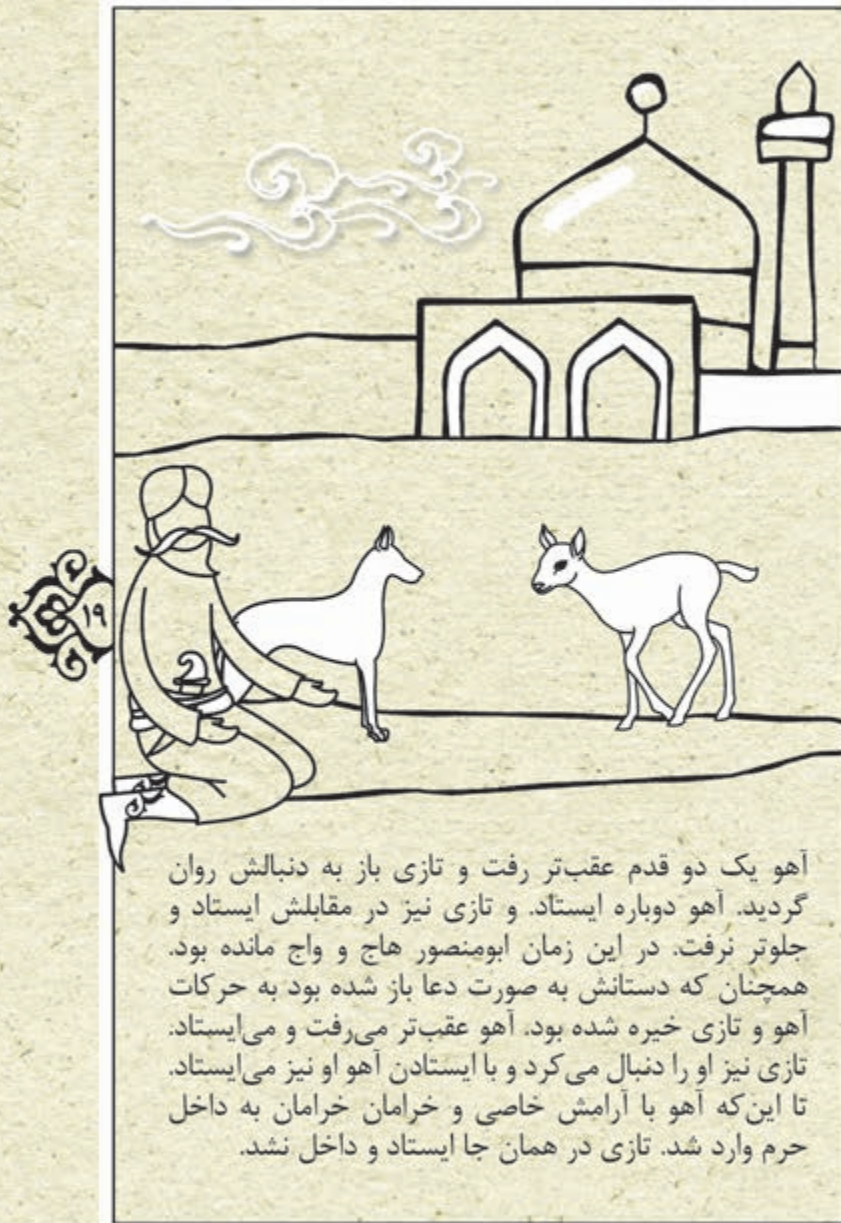 ۱۹
آهو یک دو قدم عقب‌تر رفت و تازی باز به دنبالش روان
گردید. آهو دوباره ایستاد. و تازی نیز در مقابلش ایستاد و
جلوتر نرفت. در این زمان ابومنصور هاج و واج مانده بود.
همچنان که دستانش به صورت دعا باز شده بود به حرکات
آهو و تازی خیره شده بود. آهو عقب‌تر می‌رفت و می‌ایستاد.
تازی نیز او را دنبال می‌کرد و با ایستادن آهو او نیز می‌ایستاد.
تا این‌که آهو با آرامش خاصی و خرامان خرامان به داخل
حرم وارد شد. تازی در همان جا ایستاد و داخل نشد.